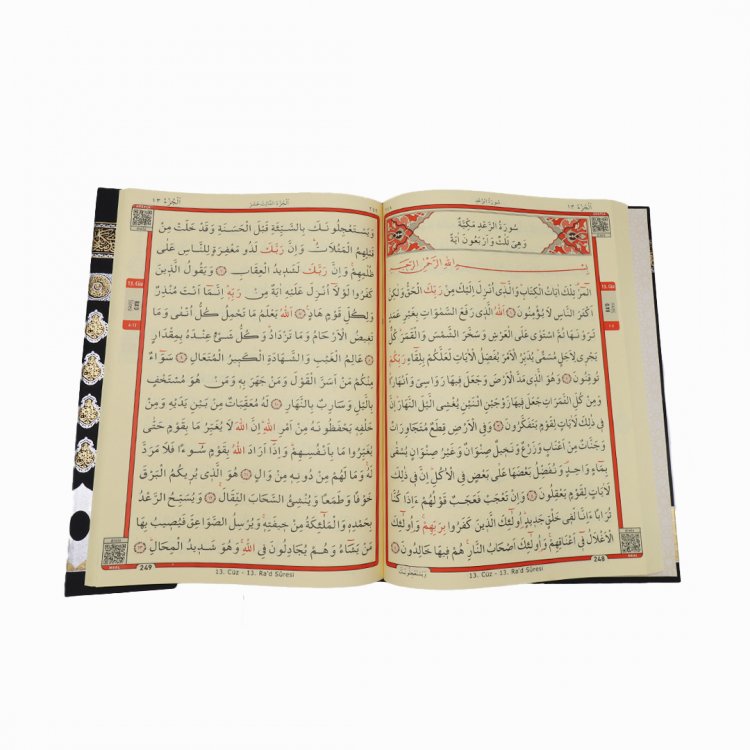 اَلْجُزْءُ ١٣
سُورَةُ الرَّعْدِ
سُورَةُ الرَّعْدِ مَكِّيَّةٌ
وَهِىَ ثَلٰثٌ وَاَرْبَعُونَ اٰيَةً
بِسْمِ اللّٰهِ الرَّحْمٰنِ الرَّحِيمِ
الٓمٓرٰ تِلْكَ اٰيَاتُ الْكِتَابِ وَالَّذِى اُنْزِلَ اِلَيْكَ مِنْ رَبِّكَ الْحَقُّ وَلٰكِنَّ
اَكْثَرَ النَّاسِ لَا يُؤْمِنُونَ ١ اَللّٰهُ الَّذِى رَفَعَ السَّمٰوَاتِ بِغَيْرِ عَمَدٍ
تَرَوْنَهَا ثُمَّ اسْتَوٰى عَلَى الْعَرْشِ وَسَخَّرَ الشَّمْسَ وَالْقَمَرَ كُلٌّ
يَجْرِى لِاَجَلٍ مُسَمًّى يُدَبِّرُ الْاَمْرَ يُفَصِّلُ الْاٰيَاتِ لَعَلَّكُمْ بِلِقَٓاءِ رَبِّكُمْ
تُوقِنُونَ ٢ وَهُوَ الَّذِى مَدَّ الْاَرْضَ وَجَعَلَ فِيهَا رَوَاسِىَ وَاَنْهَارًا
وَمِنْ كُلِّ الثَّمَرَاتِ جَعَلَ فِيهَا زَوْجَيْنِ اثْنَيْنِ يُغْشِى الَّيْلَ النَّهَارَ اِنَّ
فِى ذٰلِكَ لَاٰيَاتٍ لِقَوْمٍ يَتَفَكَّرُونَ ٣ وَفِى الْاَرْضِ قِطَعٌ مُتَجَاوِرَاتٌ
وَجَنَّاتٌ مِنْ اَعْنَابٍ وَزَرْعٌ وَنَخِيلٌ صِنْوَانٌ وَغَيْرُ صِنْوَانٍ يُسْقٰى
بِمَٓاءٍ وَاحِدٍ وَنُفَضِّلُ بَعْضَهَا عَلٰى بَعْضٍ فِى الْاُكُلِ اِنَّ فِى ذٰلِكَ
لَاٰيَاتٍ لِقَوْمٍ يَعْقِلُونَ ٤ وَاِنْ تَعْجَبْ فَعَجَبٌ قَوْلُهُمْ ءَاِذَا كُنَّا
تُرَابًا ءَاِنَّا لَفِى خَلْقٍ جَدِيدٍ اُو۬لٰٓئِكَ الَّذِينَ كَفَرُوا بِرَبِّهِمْ وَاُو۬لٰٓئِكَ
الْاَغْلَالُ فِٓى اَعْنَاقِهِمْ وَاُو۬لٰٓئِكَ اَصْحَابُ النَّارِ هُمْ فِيهَا خَالِدُونَ ٥
وَيَسْتَعْجِلُونَكَ
248
13. Cüz - 13. Ra'd Sûresi
اَلْجُزْءُ الثَّالِثَ عَشَرَ
اَلْجُزْءُ ١٣
وَيَسْتَعْجِلُونَكَ بِالسَّيِّئَةِ قَبْلَ الْحَسَنَةِ وَقَدْ خَلَتْ مِنْ
قَبْلِهِمُ الْمَثُلَاتُ وَاِنَّ رَبَّكَ لَذُو مَغْفِرَةٍ لِلنَّاسِ عَلٰى
ظُلْمِهِمْ وَاِنَّ رَبَّكَ لَشَدِيدُ الْعِقَابِ ٦ وَيَقُولُ الَّذِينَ
كَفَرُوا لَوْلَٓا اُنْزِلَ عَلَيْهِ اٰيَةٌ مِنْ رَبِّهِ اِنَّمَٓا اَنْتَ مُنْذِرٌ
وَلِكُلِّ قَوْمٍ هَادٍ ٧ اَللّٰهُ يَعْلَمُ مَا تَحْمِلُ كُلُّ اُنْثٰى وَمَا
تَغِيضُ الْاَرْحَامُ وَمَا تَزْدَادُ وَكُلُّ شَىْءٍ عِنْدَهُ بِمِقْدَارٍ
٨ عَالِمُ الْغَيْبِ وَالشَّهَادَةِ الْكَبِيرُ الْمُتَعَالِ ٩ سَوَٓاءٌ
مِنْكُمْ مَنْ اَسَرَّ الْقَوْلَ وَمَنْ جَهَرَ بِهِ وَمَنْ هُوَ مُسْتَخْفٍ
بِالَّيْلِ وَسَارِبٌ بِالنَّهَارِ ١٠ لَهُ مُعَقِّبَاتٌ مِنْ بَيْنِ يَدَيْهِ وَمِنْ
خَلْفِهِ يَحْفَظُونَهُ مِنْ اَمْرِ اللّٰهِ اِنَّ اللّٰهَ لَا يُغَيِّرُ مَا بِقَوْمٍ حَتّٰى
يُغَيِّرُوا مَا بِاَنْفُسِهِمْ وَاِذَٓا اَرَادَ اللّٰهُ بِقَوْمٍ سُٓوءًا فَلَا مَرَدَّ
لَهُ وَمَا لَهُمْ مِنْ دُونِهِ مِنْ وَالٍ ١١ هُوَ الَّذِى يُرِيكُمُ الْبَرْقَ
خَوْفًا وَطَمَعًا وَيُنْشِئُ السَّحَابَ الثِّقَالَ ١٢ وَيُسَبِّحُ الرَّعْدُ
بِحَمْدِهِ وَالْمَلٰٓئِكَةُ مِنْ خِيفَتِهِ وَيُرْسِلُ الصَّوَاعِقَ فَيُصِيبُ بِهَا
مَنْ يَشَٓاءُ وَهُمْ يُجَادِلُونَ فِى اللّٰهِ وَهُوَ شَدِيدُ الْمِحَالِ ١٣
249
13. Cüz - 13. Ra'd Sûresi
13. Cüz
13. Cüz